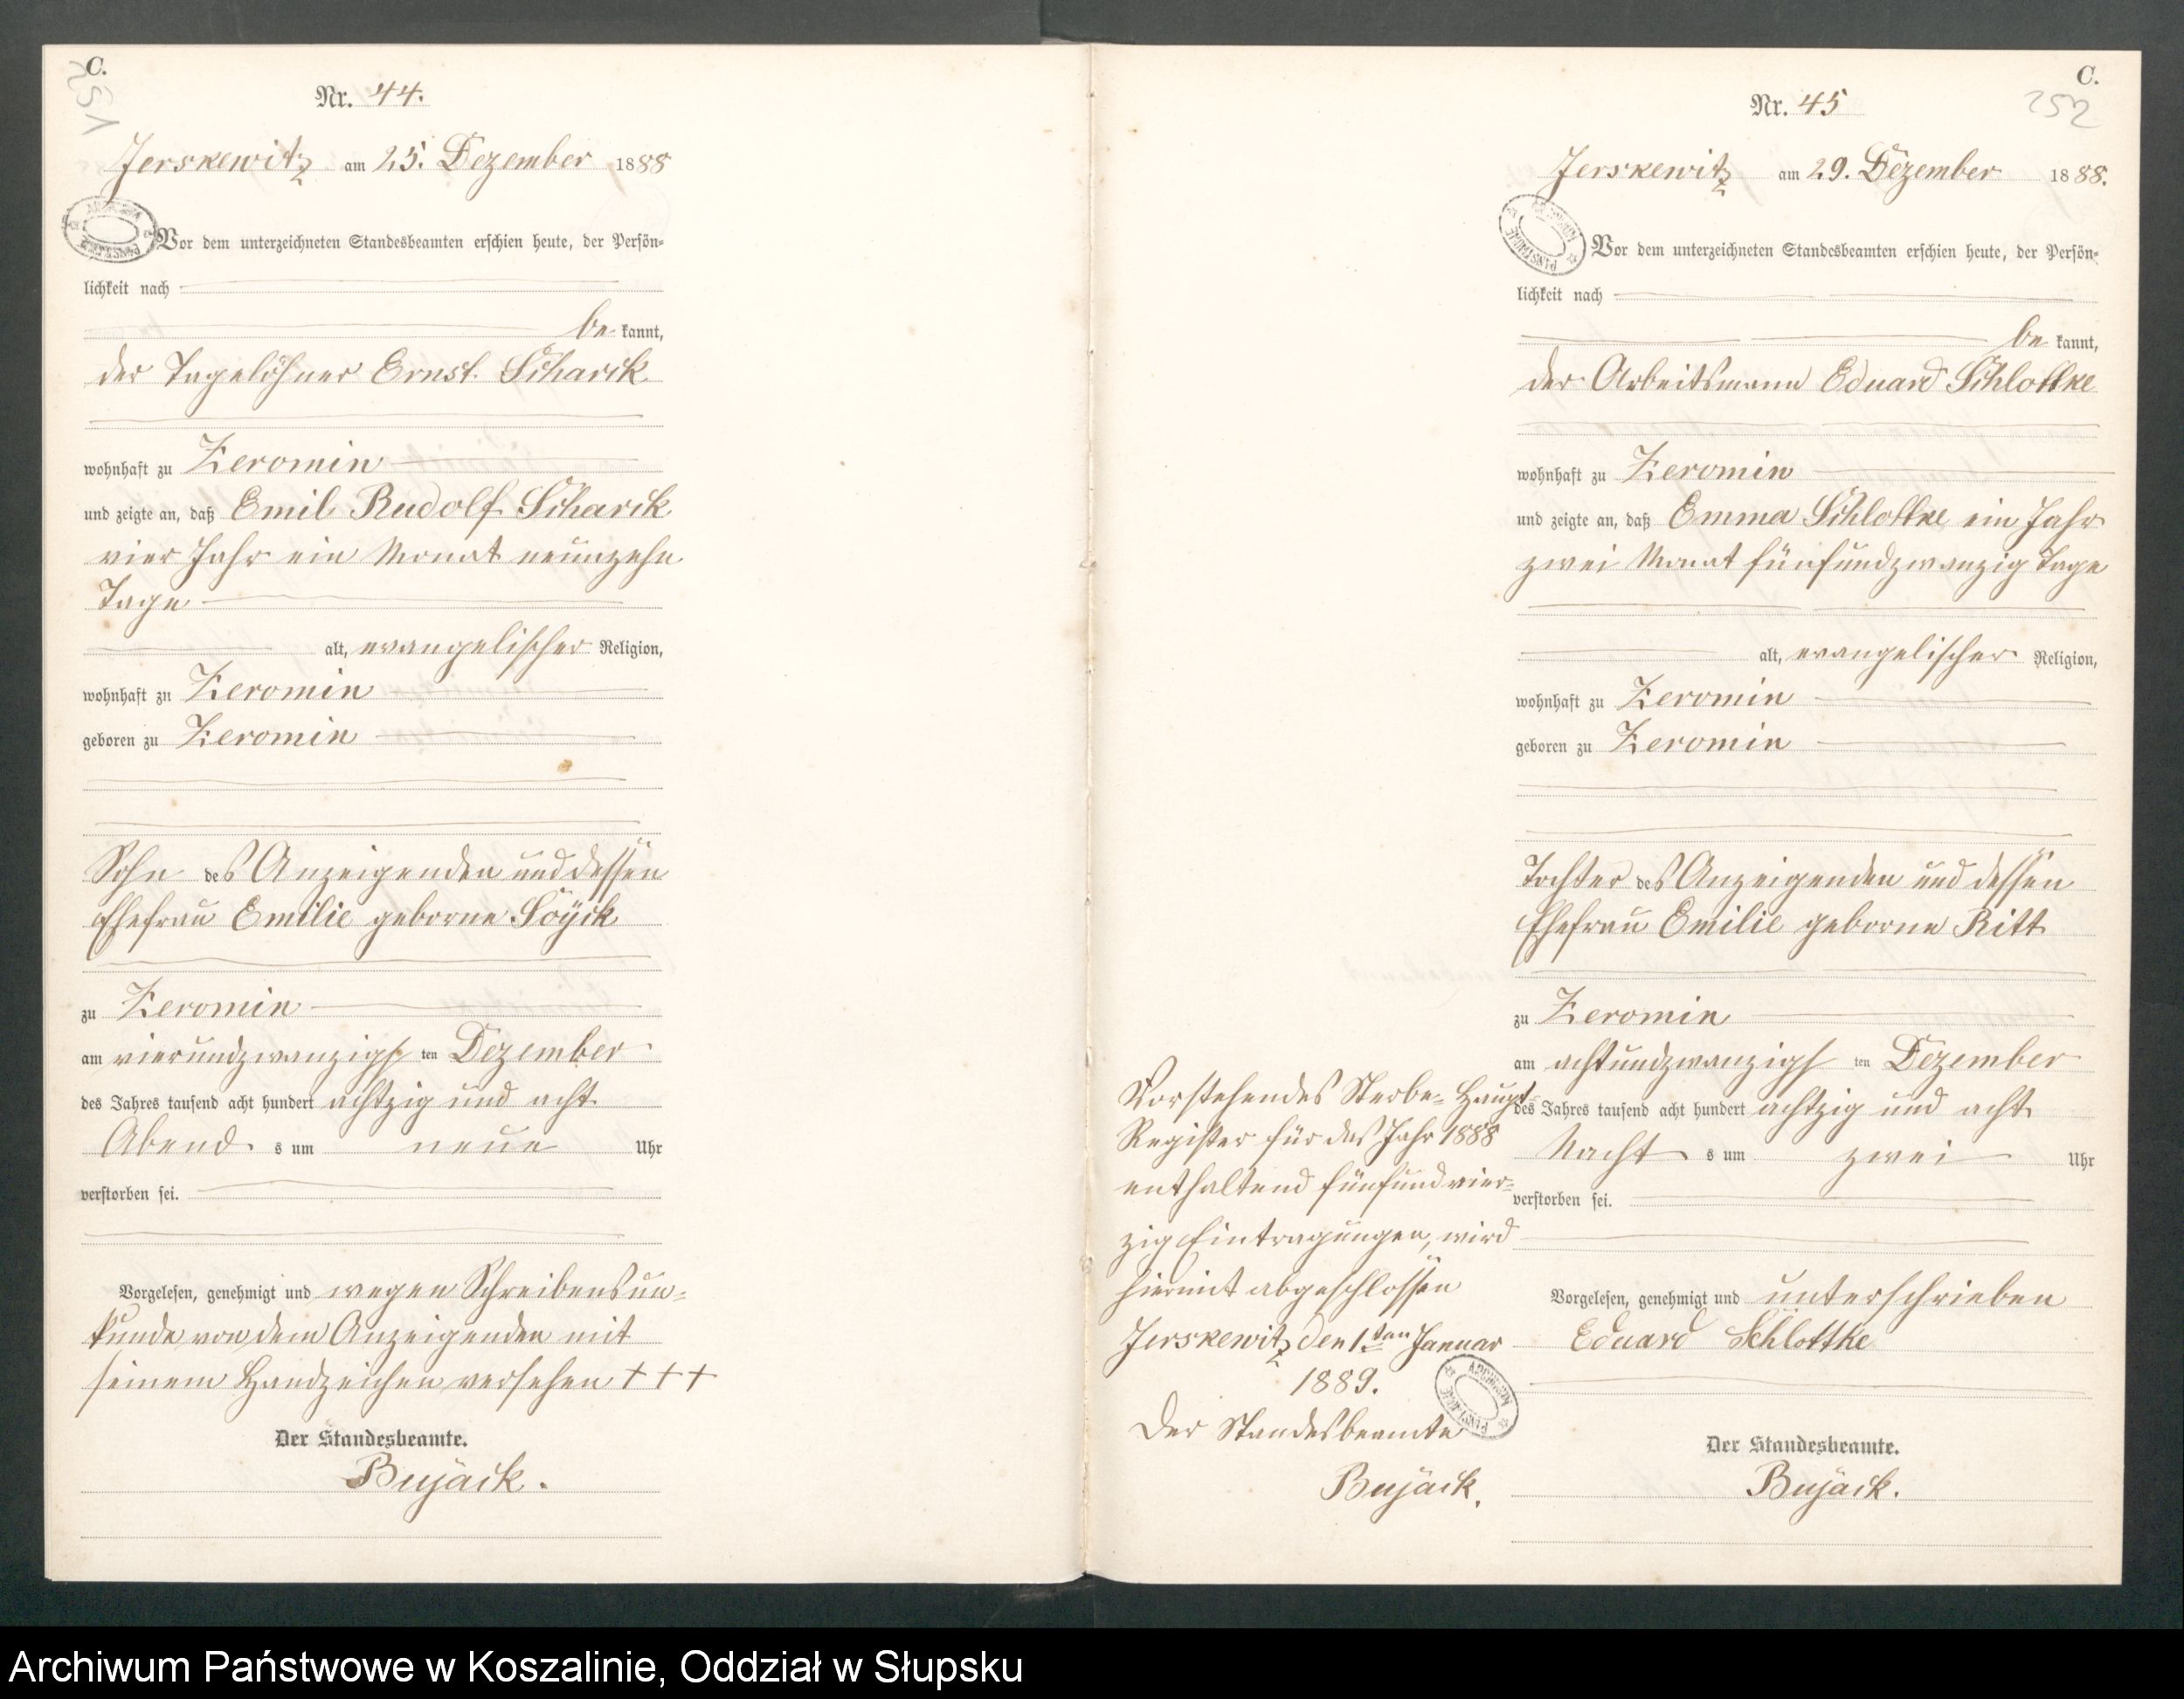 C.
251
Nr. 44.
Jerskewitz am 25. Dezember 1888
Vor dem unterzeichneten Standesbeamten erschien heute, der Persön-
lichkeit nach
be kannt,
der Tagelöhner Ernst Scharck
wohnhaft zu Zeromin
und zeigte an, daß Emil Rudolf Scharck
vier Jahr ein Monat neunzehn
Tage
alt, evangelischer Religion,
wohnhaft zu Zeromin
geboren zu Zeromin
Sohn des Anzeigenden und dessen
Ehefrau Emilie geborne
zu Zeromin
am vierundzwanzigs ten Dezember
des Jahres tausend acht hundert achtzig und acht
Abend s um neun Uhr
verstorben sei.
Vorgelesen, genehmigt und wegen Schreibensun-
kunde von dem Anzeigenden mit
seinem Handzeichen versehen + + +
Der Standesbeamte.
Bujack.
C.
252
Nr. 45
Jerskewitz am 29. Dezember 1888.
Vor dem unterzeichneten Standesbeamten erschien heute, der Persön-
lichkeit nach
be kannt,
der Arbeitsmann Eduard Schlottke
wohnhaft zu Zeromin
und zeigte an, daß Emma Schlottke ein Jahr
zwei Monat fünfundzwanzig Tage
alt, evangelischer Religion,
wohnhaft zu Zeromin
geboren zu Zeromin
Tochter des Anzeigenden und dessen
Ehefrau Emilie geborne Ritt
zu Zeromin
am achtundzwanzigs ten Dezember
des Jahres tausend acht hundert achtzig und acht
Nacht s um zwei Uhr
verstorben sei.
Vorgelesen, genehmigt und unterschrieben
Eduard Schlottke
Der Standesbeamte.
Bujack.
Vorstehendes Sterbe-Haupt-
Register für das Jahr 1888
enthaltend fünfundvier-
zig Eintragungen, wird
hiermit abgeschlossen
Jerskewitz den 1ten Januar
1889.
Der Standesbeamte
Bujack.
Archiwum Państwowe w Koszalinie, Oddział w Słupsku